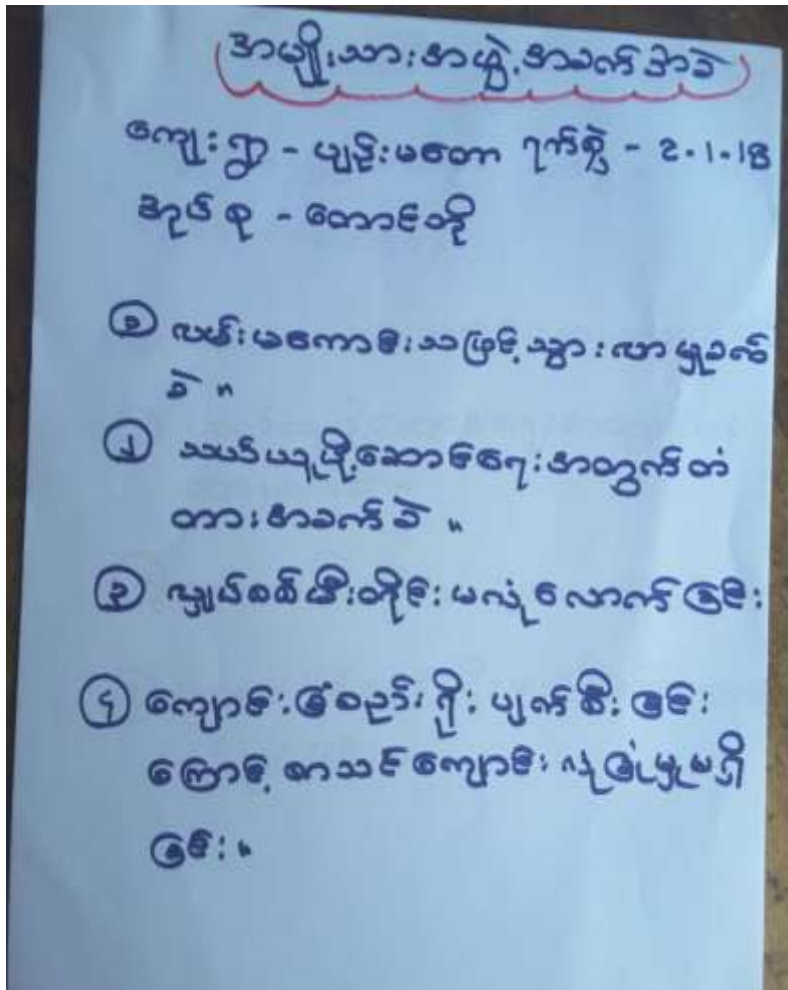 (အမျိုးသားအဖွဲ့အခက်အခဲ)
ကျေးရွာ - ပျဉ်းမတော ရက်စွဲ - 2.1.18
အုပ်စု - တောင်ဘို
① လမ်းမကောင်းသဖြင့်သွားလာမှုခက်
ခဲ ။
② သယ်ယူပို့ဆောင်ရေးအတွက်တံ
တားအခက်ခဲ ။
③ လျှပ်စစ်မီးတိုင်းမလုံလောက်ခြင်း
④ ကျောင်းခြံစည်းရိုးပျက်စီးခြင်း
ကြောင့်စာသင်ကျောင်းလုံခြုံမှုမရှိ
ခြင်း ။